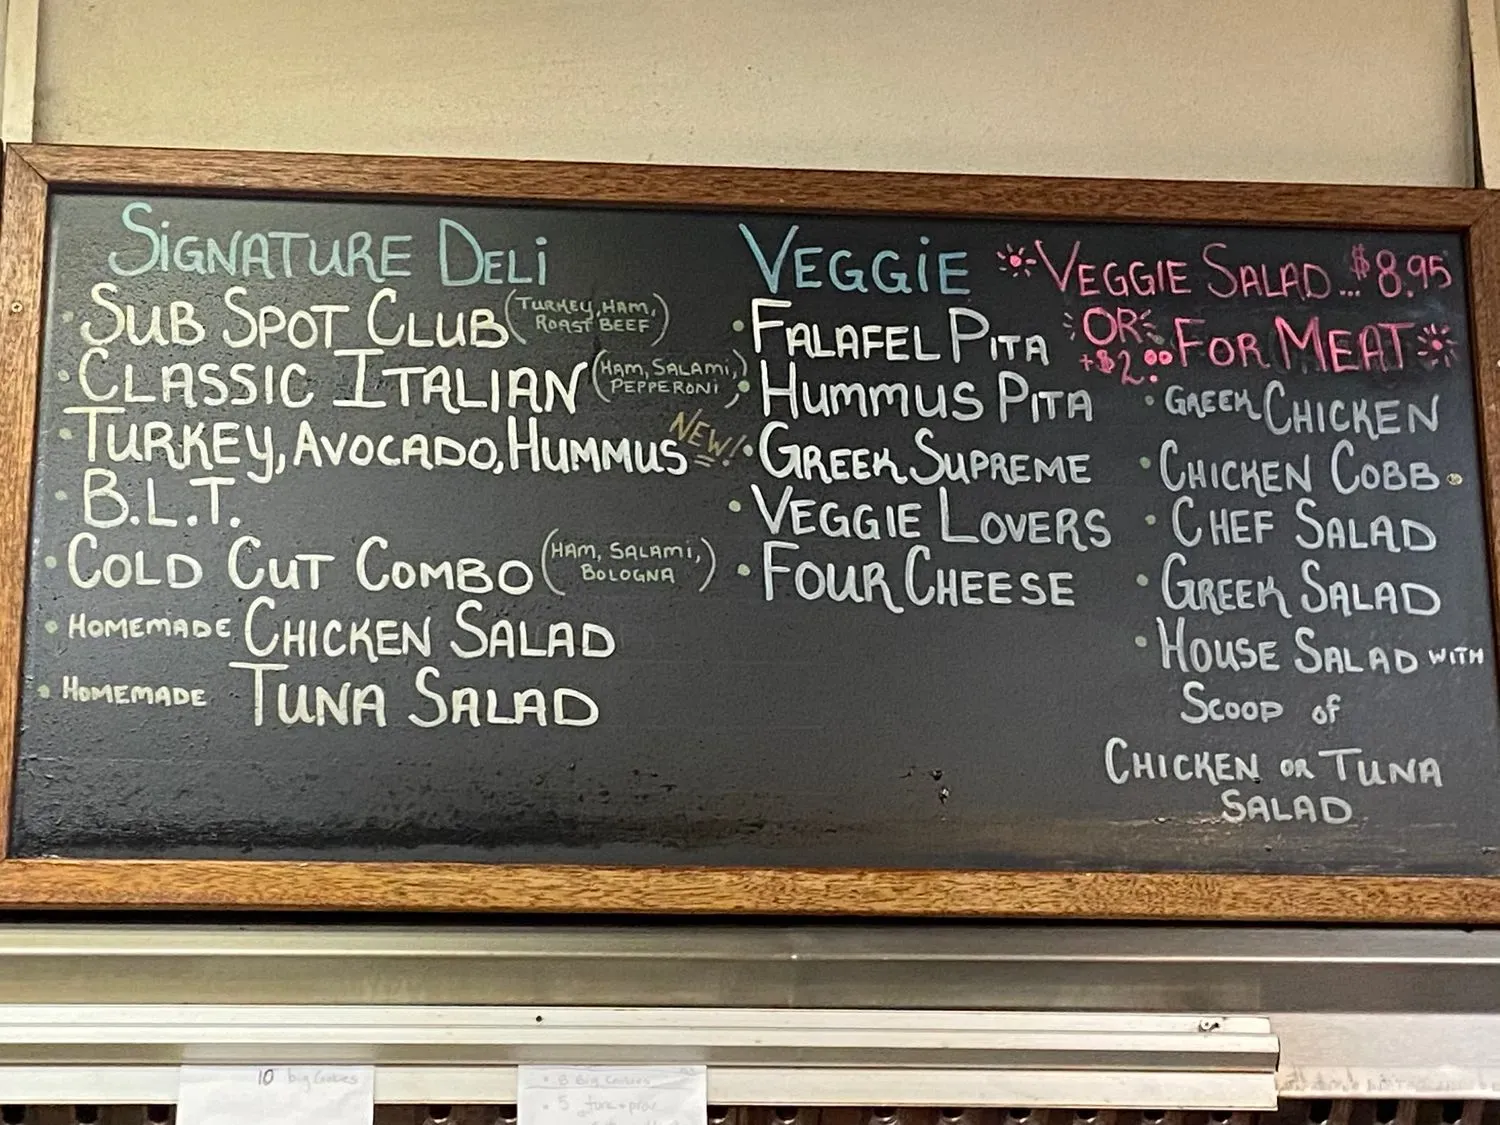 SIGNATURE DELI
• SUB SPOT CLUB (TURKEY, HAM, ROAST BEEF)
• CLASSIC ITALIAN (HAM, SALAMI, PEPPERONI)
• TURKEY, AVOCADO, HUMMUS NEW!
• B.L.T.
• COLD CUT COMBO (HAM, SALAMI, BOLOGNA)
• HOMEMADE CHICKEN SALAD
• HOMEMADE TUNA SALAD
VEGGIE
• FALAFEL PITA
• HUMMUS PITA
• GREEK SUPREME
• VEGGIE LOVERS
• FOUR CHEESE
VEGGIE SALAD... $8.95
OR +$2.00 FOR MEAT
• GREEK CHICKEN
• CHICKEN COBB
• CHEF SALAD
• GREEK SALAD
• HOUSE SALAD WITH
SCOOP of
CHICKEN OR TUNA
SALAD
10 big Cookies
• 8 Big Cookies
• 5 turk + prov